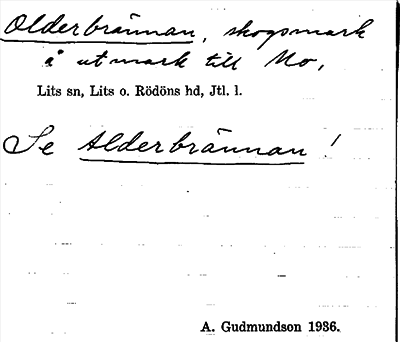 Olderbrännan, skogsmark
å utmark till Mo,
Lits sn, Lits o. Rödöns hd, Jtl. l.
Se Alderbrännan!
A. Gudmundson 1936.